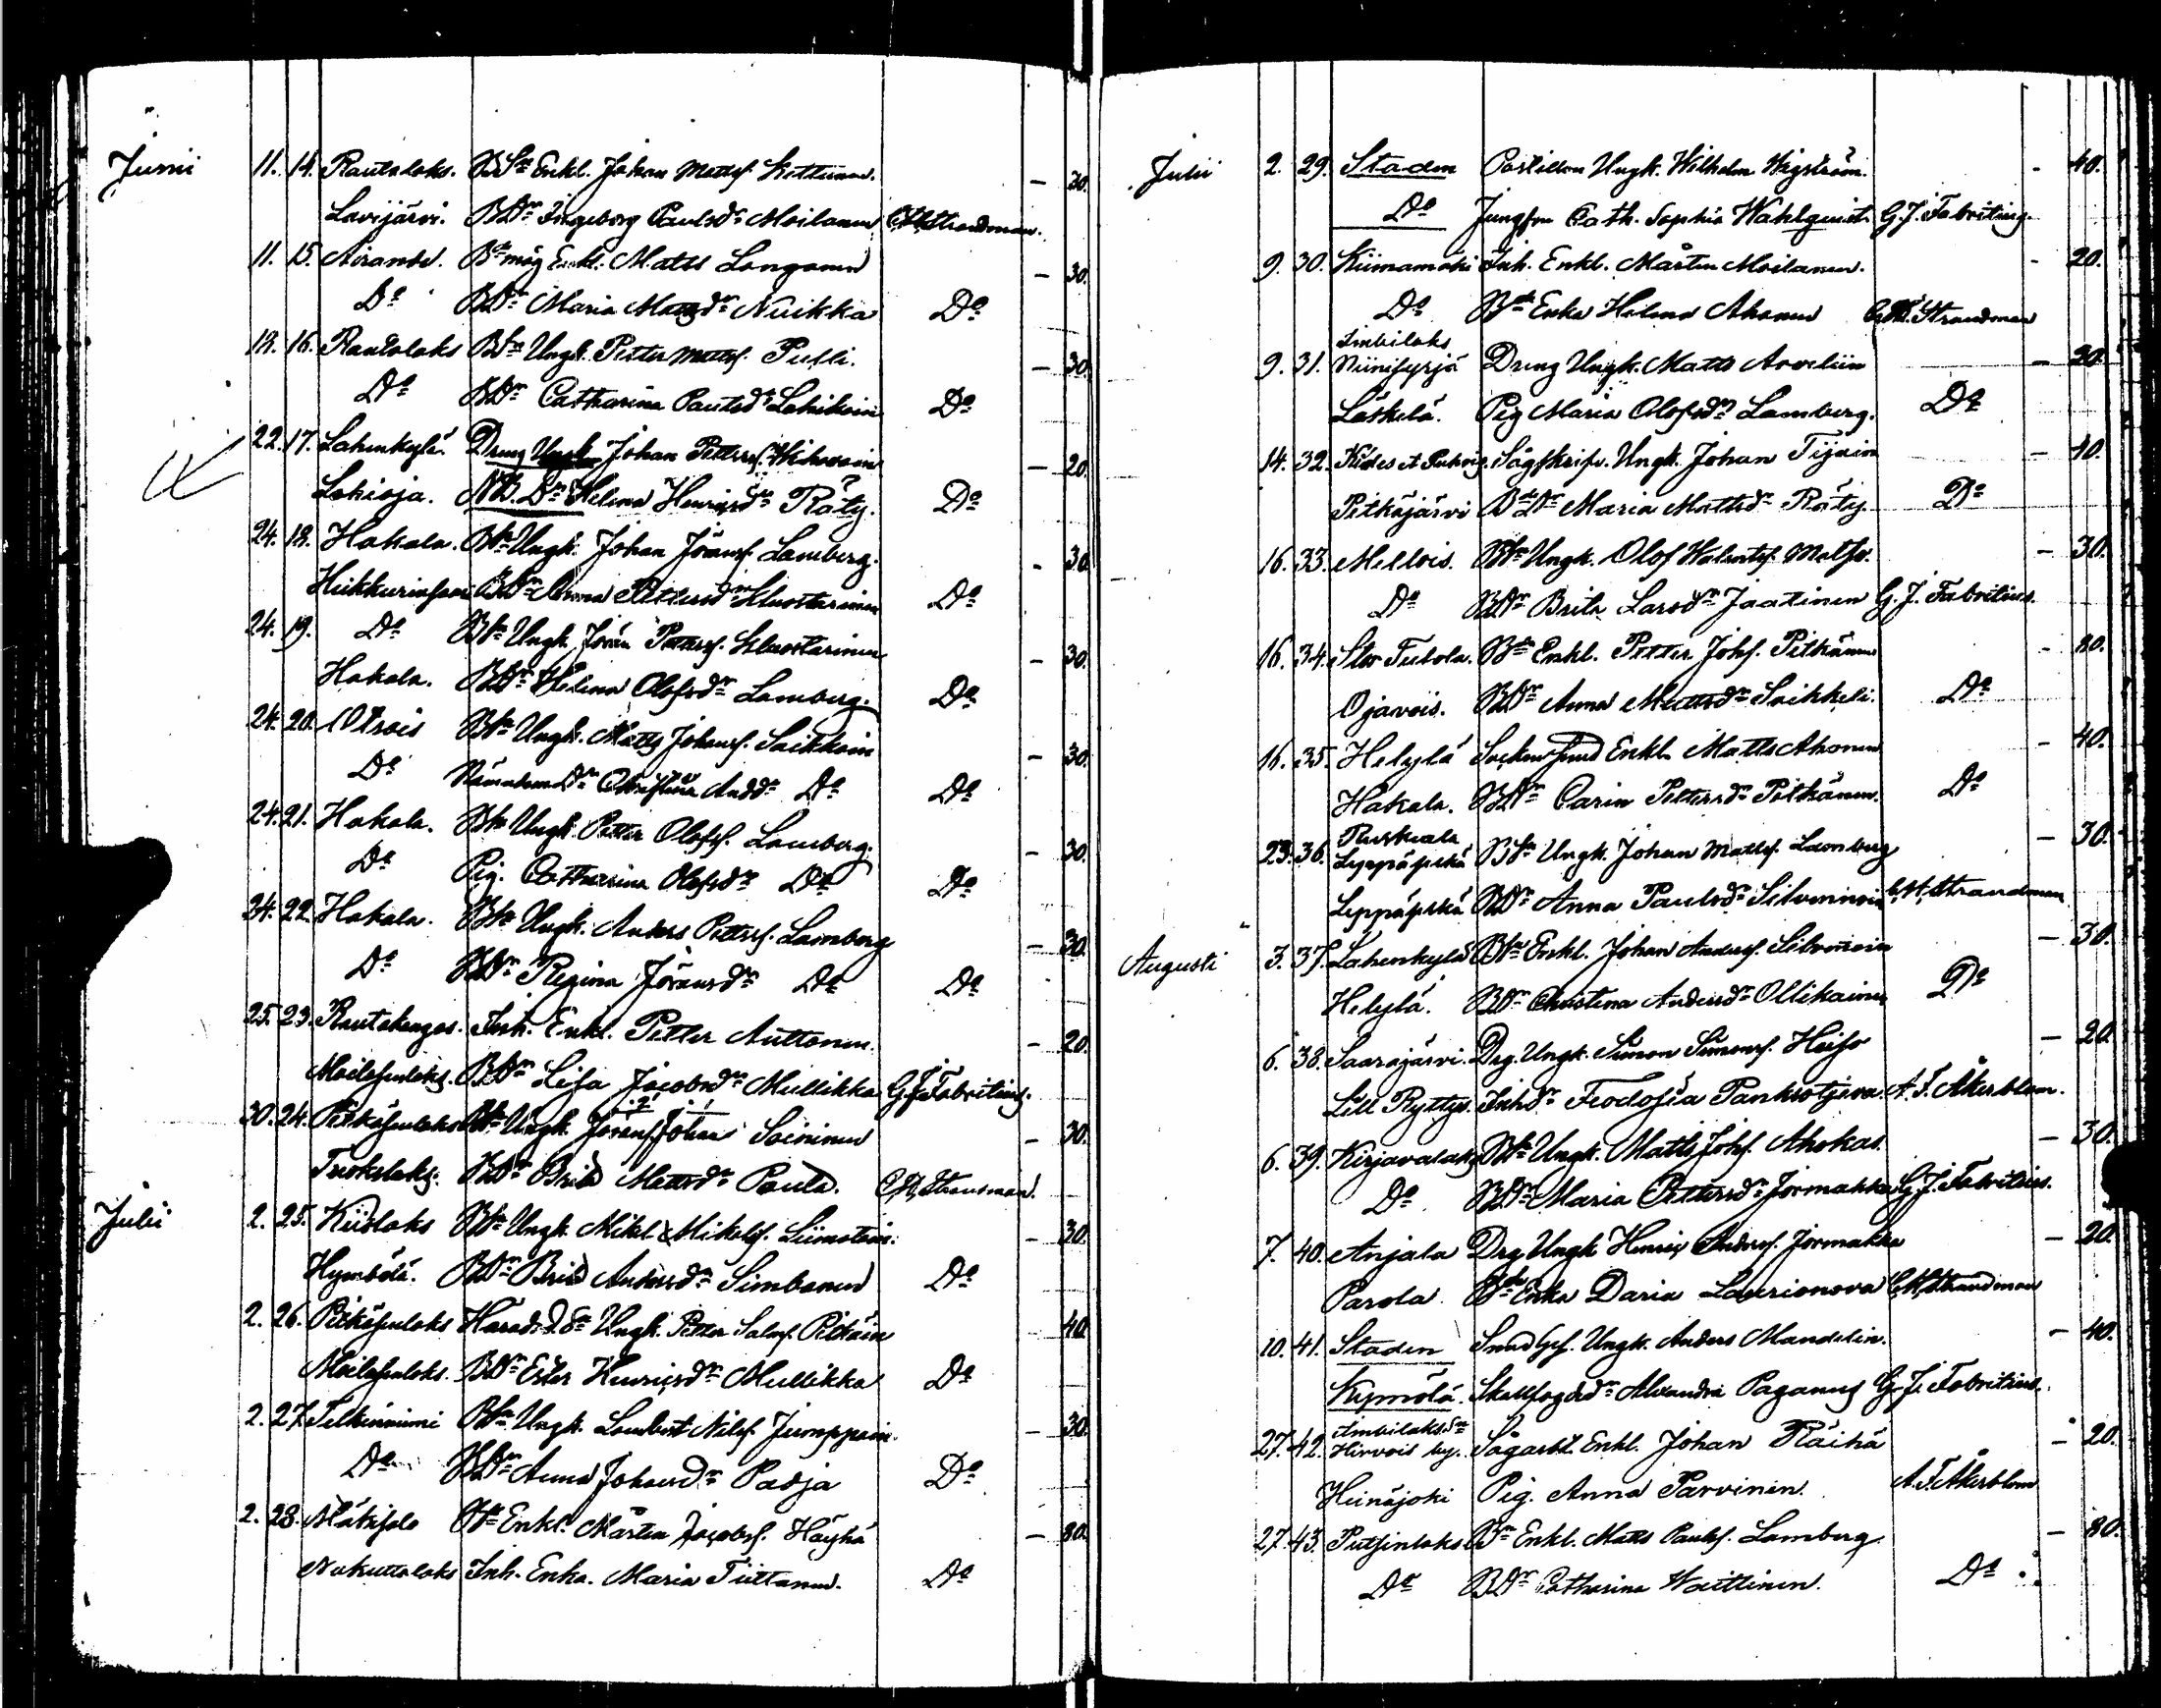 Junii 11. 14. Rautalaks. BSn Enkl. Johan Mattsf. Kettunen. — 30.
Lavijärvi. BDr Ingeborg Paulsdr Moilanen C.H. Strandman.
11. 15. Airanne. Bde måg Enkl. Matts Langanen — 30.
Do BDr Maria Mattsdr Nuikka Do
18. 16. Rautalaks BSn Ungk. Petter Mattsf. Pulli. — 30.
Do BDr Catharina Paulsdr Lahikain Do
22. 17. Lahenkylä. Dreng Ungk Johan Pettersf. Wihavain — 20.
Lohioja. NB. Dr Helena Henricsdr Räty. Do
24. 18. Hakala. BSn Ungk. Johan Jöransf. Lamberg. — 30.
BDr Anna Pettersdr Kluostarinen Do
24. 19. Do BSn Ungk. Jöran Pettersf. Kluostarinen — 30.
Hakala. BDr Helena Olofsdr Lamberg. Do
24. 20. Otrois BSn Ungk. Matts Johansf. Saikkain — 30.
Do Nämndem. Dr Christina Andsdr Do Do
24. 21. Hakala. BSn Ungk. Petter Olofsf. Lamberg. — 30.
Do Pig. Catharina Olofsdr Do Do
24. 22. Hakala. BSn Ungk. Anders Pettersf. Lamberg — 30.
Do BDr Regina Jöransdr Do Do
25. 23. Rautakangas. Inh. Enkl. Petter Auttonen. — 20.
BDr Lisa Jacobsdr Mullikka G.J. Fabritius.
30. 24. BSn Ungk. Jöransf. Johan Soininen — 30.
Tuokslaks. BDr Brita Mattsdr Paula. C.H. Strandman.
Julii 2. 25. Kuslaks BSn Ungk. Mikel Mikelsf. Liimatain. — 30.
Hymbölä. BDr Brita Andersdr Simbanen Do
2. 26. Härads d. Sn Ungk. Petter Salmsf. Pitkäin 40.
BDr Ester Henricsdr Mullikka Do
2. 27. Telkinniimi BSn Ungk. Lambert Nilsf. Jumppain. — 30.
Do BDr Anna Johansdr Padja Do
2. 28. Mäkisalo BSn Enkl. Mårten Jacobsf. Häyhä — 30.
Nukuttalaks Inh. Enka. Maria Tiittanen. Do
Julii 2. 29. Staden Postillon Ungk. Wilhelm Wigström. - 40.
Do Jungfru Cath. Sophia Wahlquist G.J. Fabritius.
9. 30. Kiimamäki Inh. Enkl. Mårten Moilanen. - 20.
Do Bde Enka Helena Ahonen C.H. Strandman
Imbilaks
9. 31. Niinisyrjä Dreng Ungk. Matts Arveliin — 20.
Läskelä. Pig Maria Olofsdr Lamberg. Do
14. 32. Kides et Puhois. Sågskrifv. Ungk. Johan Tijain — 40.
Pitkäjärvi BdeDr Maria Mattsdr Räty. Do
16. 33. Mellois. BSn Ungk. Olof Walentsf. Matsi. — 30.
Do BDr Brita Larsdr Jaatinen G.J. Fabritius.
16. 34. Stor Tulola. Bde Enkl. Petter Johsf. Pitkänen — 30.
Ojavois. BDr Anna Mattsdr Saikkeli. Do
16. 35. Helylä Sockensmed Enkl. Matts Ahonen — 40.
Hakala. BDr Carin Pettersdr Pitkänen. Do
Ruskeala
23. 36. Leppäselkä BSn Ungk. Johan Mattsf. Lamberg — 30.
Leppäselkä BDr Anna Paulsdr Silvennoin C.H. Strandman
Augusti 3. 37. Lahenkylä BSn Enkl. Johan Andersf. Silvenoin — 30.
Helylä. BDr Christina Andersdr Ollikainen Do
6. 38. Saarajärvi. Drg. Ungk. Simon Simonsf. Heiso — 20.
Lill Ryttys. Inhdr Feodosia Pankrotjeva. A.F. Åkerblom.
6. 39. Kirjavalaks BSn Ungk. Matts Johsf. Ahokas. — 30.
Do BDr Maria Pettersdr Jormakka G.J. Fabritius.
7. 40. Anjala Drg Ungk Henric Andersf. Jormakka — 20.
Parola. Bde Enka Daria Laurionova C.H. Strandman
10. 41. Staden Smed Ges. Ungk. Anders Mandelin. — 40.
Kymölä. Skallfogdedr Alexandra Paganus G.J. Fabritius.
Imbilaks Sn
27. 42. Hirvois by. Sågarbt. Enkl. Johan Räihä — 20.
Heinäjoki Pig. Anna Parvinen. A.F. Åkerblom
27. 43. Putsinlaks BSn Enkl. Matts Paulsf. Lamberg — 30.
Do BDr Catharina Waittinen. Do